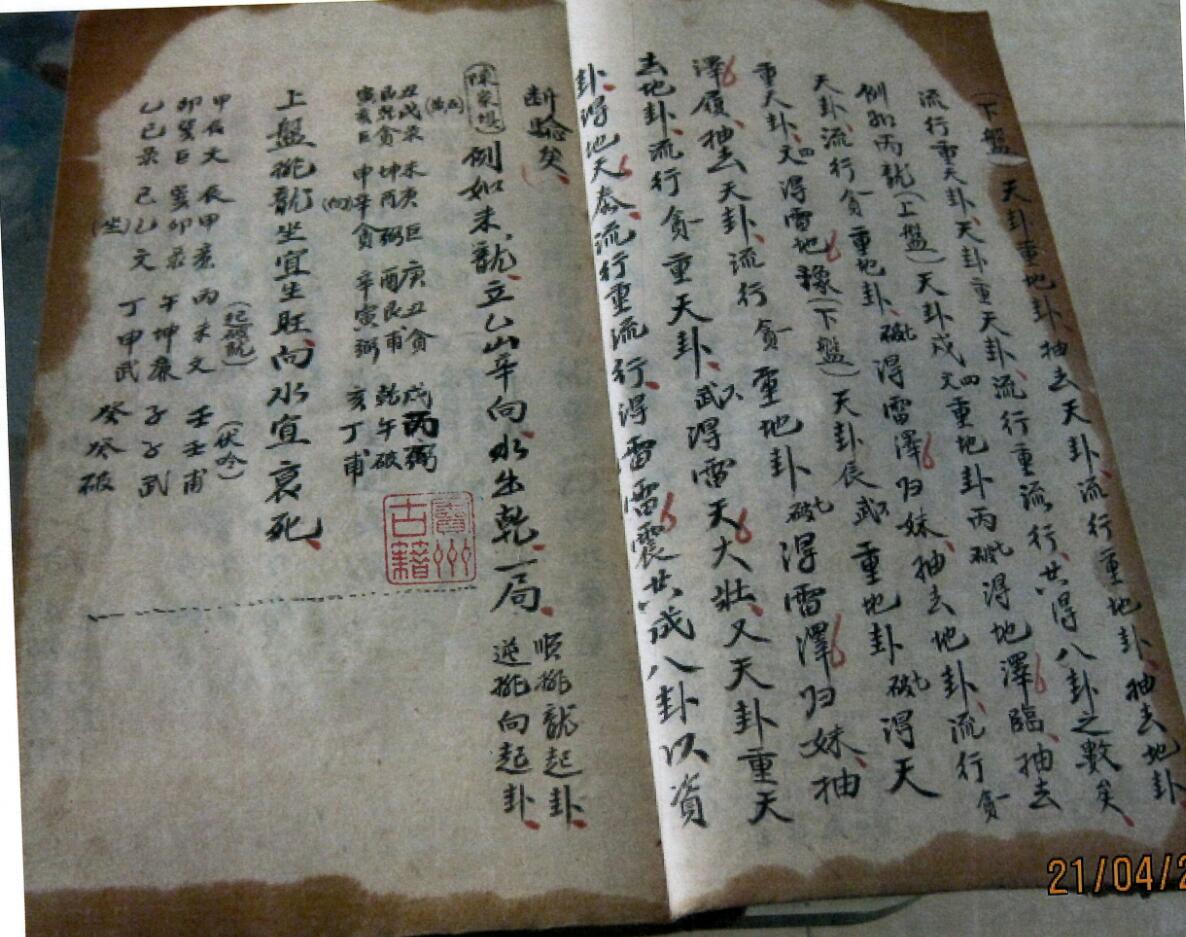 (下盤) 天卦重地卦、抽去天卦、流行重地卦、抽去地卦
流行重天卦、天卦重天卦、流行重流行、共得八卦之數矣、
例如丙龍(上盤)天卦戌文四重地卦丙破七得地澤臨、抽去
天卦、流行貪重地卦、破七得雷澤归妹、抽去地卦、流行貪一
重天卦、文四得雷地豫(下盤)天卦辰武六重地卦破七得天
澤履、抽去天卦、流行貪重地卦破七得雷澤归妹、抽
去地卦、流行貪一重天卦、武六得雷天大壯、又天卦重天
卦、得地天泰、流行重流行、得雷雷震共成八卦以資
断驗矣、
陳家塲 例如未龍、立乙山辛向水出乾、一局、順排龍起卦、逆排向起卦、
(五黃) 丑戌彔 未庚巨 庚丑貪 戌丙弼
艮乾貪 坤酉弼 酉艮甫 乾午破
寅亥巨 (向)申辛貪 辛寅弼 亥丁甫
上盤排龍坐宜生旺向水宜衰死、
甲辰文 辰甲廉 丙未文 壬壬甫
卯巽巨 巽卯彔 午坤廉 子子武
乙巳彔 巳乙文 丁申武 癸癸破
(坐)
(伏吟)
賓州古籍
21/04/2